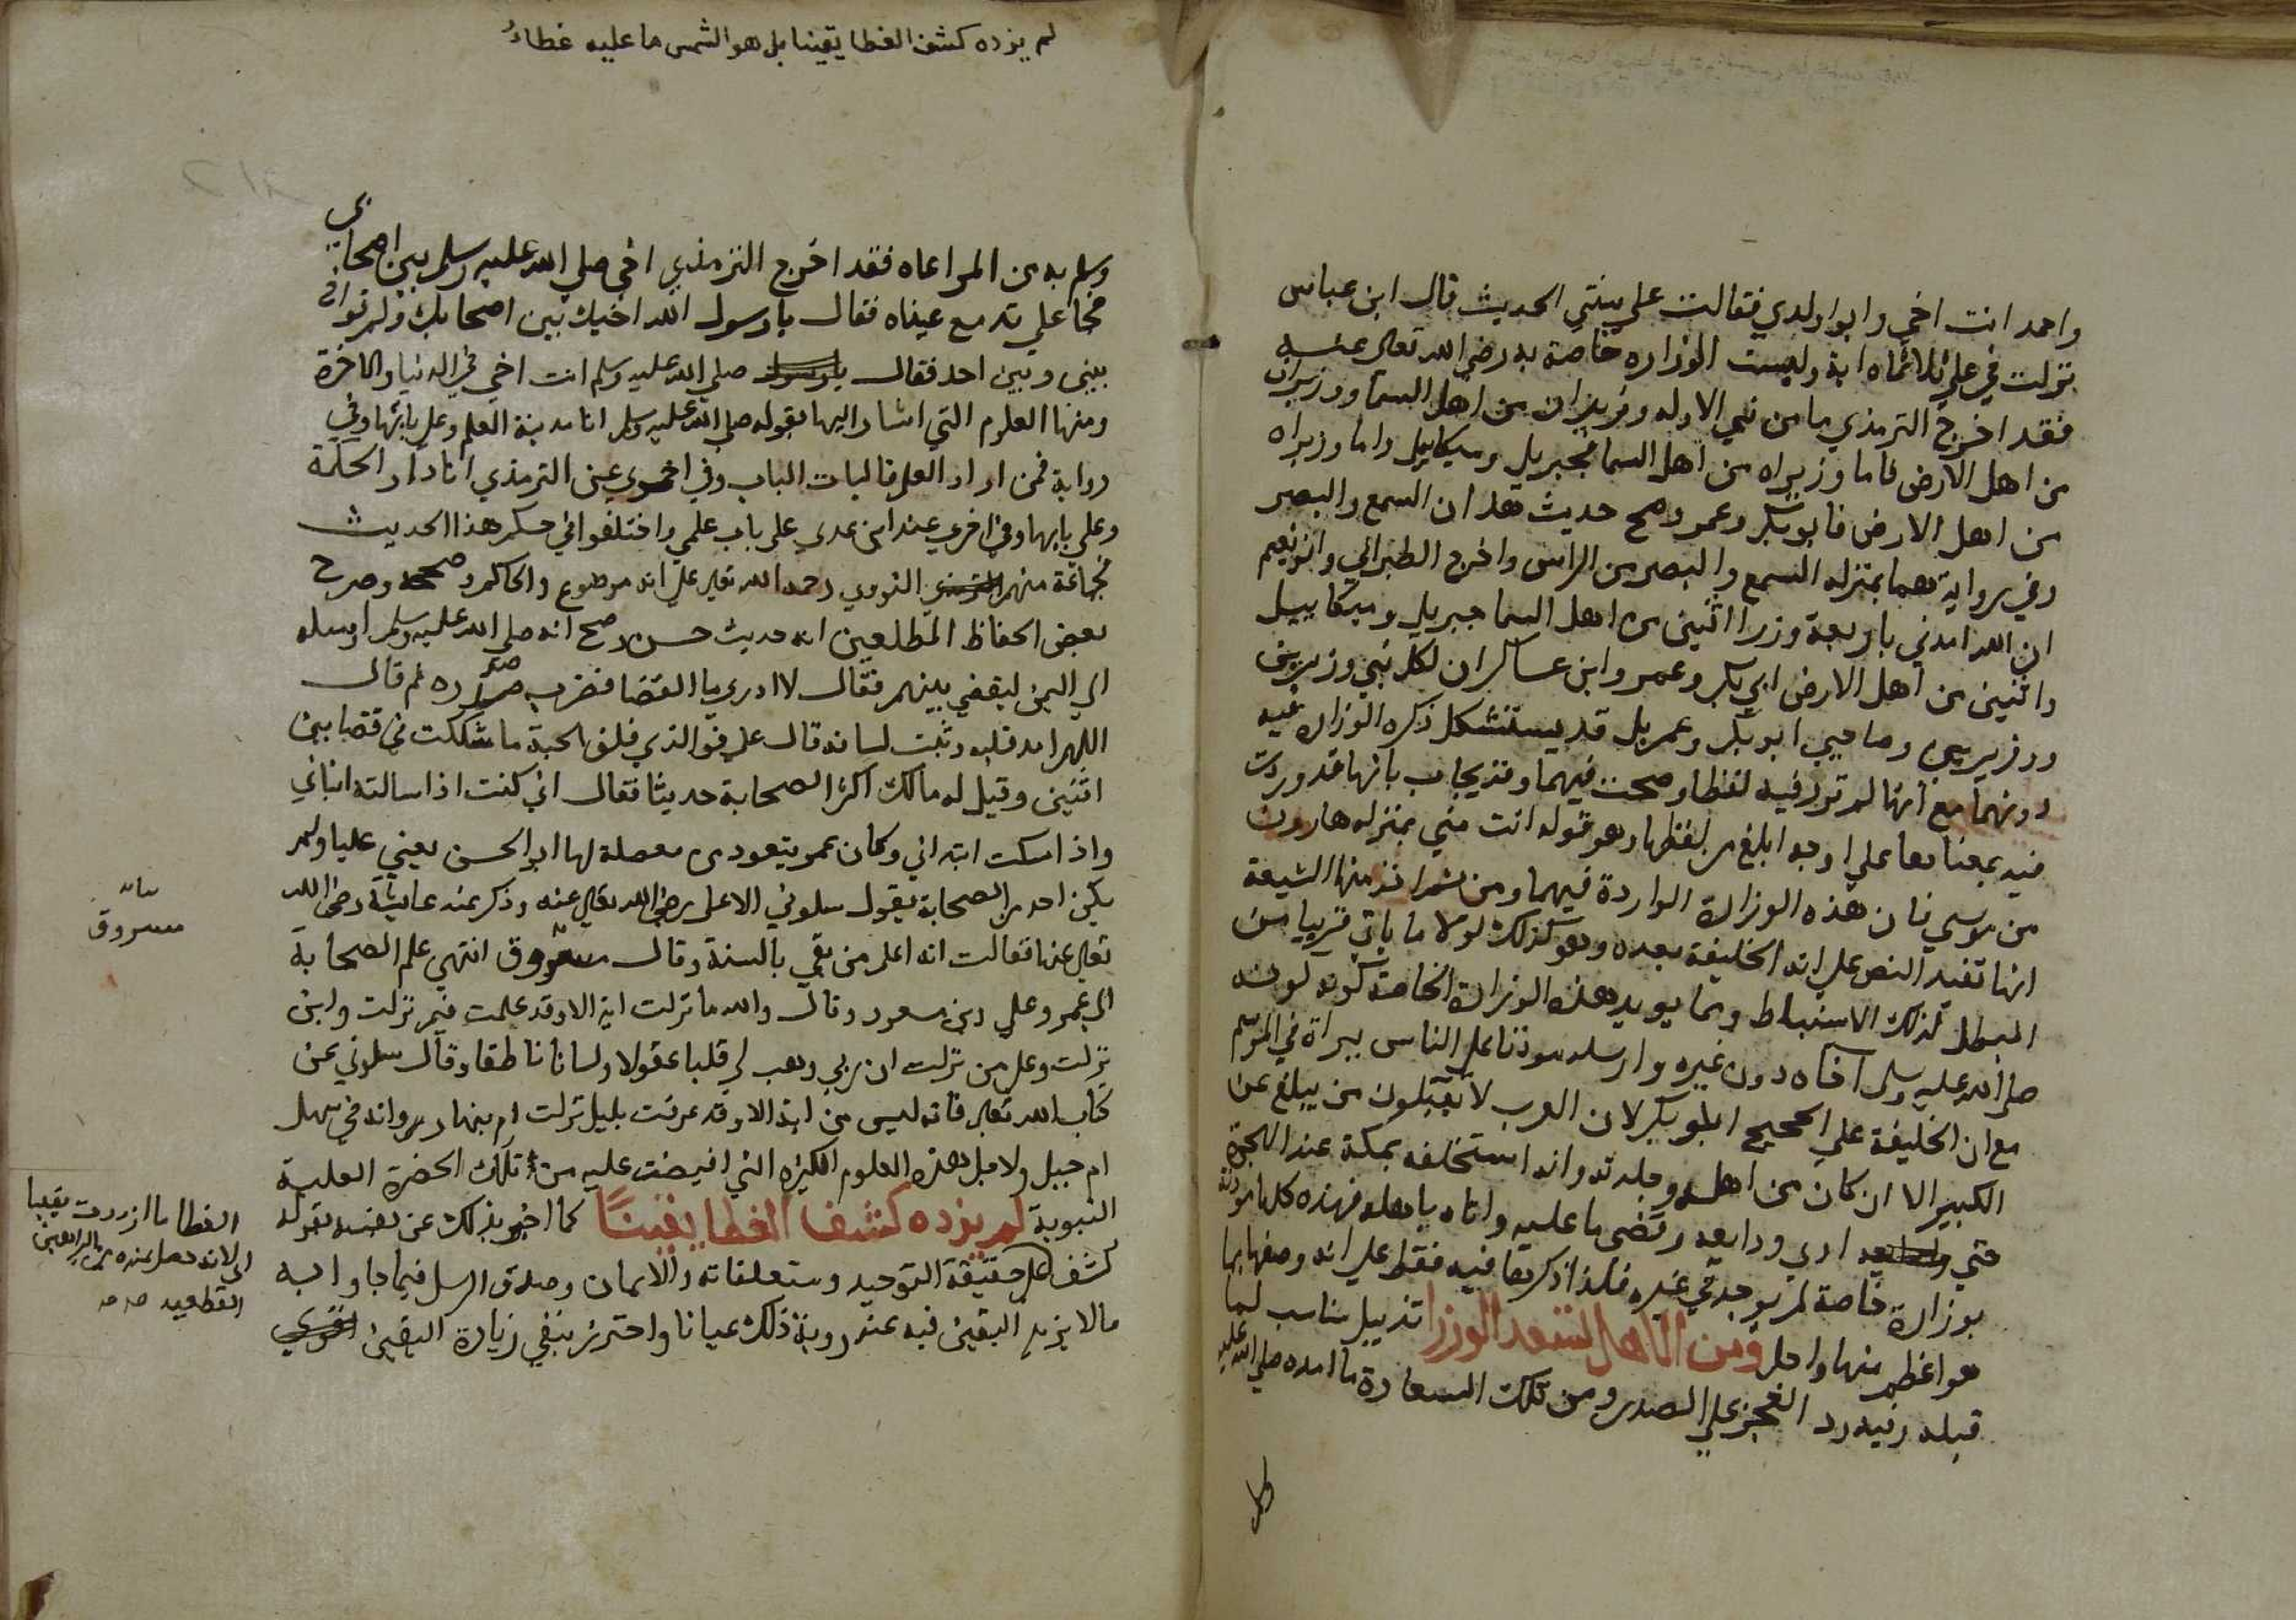 واحمد انت اخي وابو اولدي فقالت علي بينتي الحديث قال ابن عباس
نزلت في علي ثلاثماه اية وليست الوزاره خاصة به رضي الله تعالى عنه
فقد اخرج الترمذي ما من نبي الا وله وزيران من اهل السما ووزيران
من اهل الارض فاما وزيراه من اهل السما فجبريل وميكاييل واما وزيراه
من اهل الارض فابو بكر وعمر وصح حديث هذان السمع والبصر
وفي رواية هما بمنزله السمع والبصر من الراس واخرج الطبراني وابو نعيم
ان الله امدني باربعة وزرا اثنين من اهل السما جبريل وميكاييل
واثنين من اهل الارض ابي بكر وعمر وابن عساكر ان لكل نبي وزيرين
ووزيريي وصاحبي ابو بكر وعمر بل قد يستشكل ذكره الوزاره فيه
دونهما مع انها لم ترد فيه لفظا وصحت فيهما وقد يجاب بانها قد وردت
فيه بمعناها على اوجه ابلغ من لفظها وهو قوله انت مني بمنزله هارون
من موسي فان هذه الوزارة الواردة فيهما ومن ثم اخذ منها الشيعة
انها تفيد النص على انه الخليفة بعده وهو كذلك لولا ما ياتي قريبا من
المبطل لذلك الاستنباط ومما يويد هذه الوزارة الخاصة كونه
صلى الله عليه وسلم آخاه دون غيره وارسله موذنا على الناس ببراة في الموسم
مع ان الخليفة علي الحجيج ابو بكر لان العرب لا يقبلون من يبلغ عن
الكبير الا ان كان من اهله وجلدته وانه استخلفه بمكة عند الهجرة
حتي ادي ودايعه وقضي ما عليه واتاه باهله فهذه كلها موذنة
بوزارة خاصة لم توجد في غيره فلذا ذكرها فيه فقط على انه وصفهما بما
هو اعظم منها واجل ومن الاهل تسعد الوزرا تذييل مناسب لما
قبله وفيه رد العجز علي الصدر ومن تلك السعادة ما امده صلي الله عليه
لم يزده كشف الغطا يقينا بل هو الشمس ما عليه غطاء
وسلم به من المراعاه فقد اخرج الترمذي اخي صلي الله عليه وسلم بين اصحابي
فجا علي تدمع عيناه فقال يا رسول الله اخيت بين اصحابك ولم تواخ
بيني وبين احد فقال صلي الله عليه وسلم انت اخي في الدنيا والاخرة
ومنها العلوم التي اشار اليها بقوله صلى الله عليه وسلم انا مدينة العلم وعلي بابها وفي
رواية فمن اراد العلم فاليات الباب وفي اخري عن الترمذي انا دار الحكمة
وعلي بابها وفي اخري عند ابن عدي علي باب علمي واختلفوا في حكم هذا الحديث
فجماعة منهم النووي رحمه الله تعالى على انه موضوع والحاكم وصححه وصرح
بعض الحفاظ المطلعين انه حديث حسن وصح انه صلى الله عليه وسلم ارسله
الي اليمن ليقضي بينهم فقال لا ادري ما القضا فضرب صدره ثم قال
اللهم اهد قلبه وثبت لسانه قال علي فوالذي فلق الحبة ما شككت في قضا بين
اثنين وقيل له مالك اكثر الصحابة حديثا فقال اني كنت اذا سالته انباني
واذا سكت ابتداني وكان عمر يتعوذ من معضلة لها ابو الحسن يعني عليا ولم
يكن احد من الصحابة يقول سلوني الا علي رضي الله تعالى عنه وذكر عند عايشة رضي الله
تعالى عنها فقالت انه اعلم من بقي بالسنة وقال مسروق انتهي علم الصحابة
الي عمر وعلي وبن مسعود وقال والله ما نزلت اية الا وقد علمت فيم نزلت واين
نزلت وعلى من نزلت ان ربي وهب لي قلبا عقولا ولسانا ناطقا وقال سلوني عن
كتاب الله تعالى فانه ليس من اية الا وقد عرفت بليل نزلت ام بنهار وانه في سهل
ام جبل ولاجل هذه العلوم الكثيره التي افيضت عليه من تلك الحضرة العلية
النبوية لم يزده كشف الغطا يقينًا كما اخبر بذلك عن نفسه بقوله
كشف عن حقيقة التوحيد ومتعلقاته والايمان وصدق الرسل فيما جاوا به
مالا يزيد اليقين فيه عند روية ذلك عيانا واحترز بنفي زيادة اليقين
مسروق
الغطا ما ازددت يقينا
الي لانه حصل عنده من البراهين
القطعيه